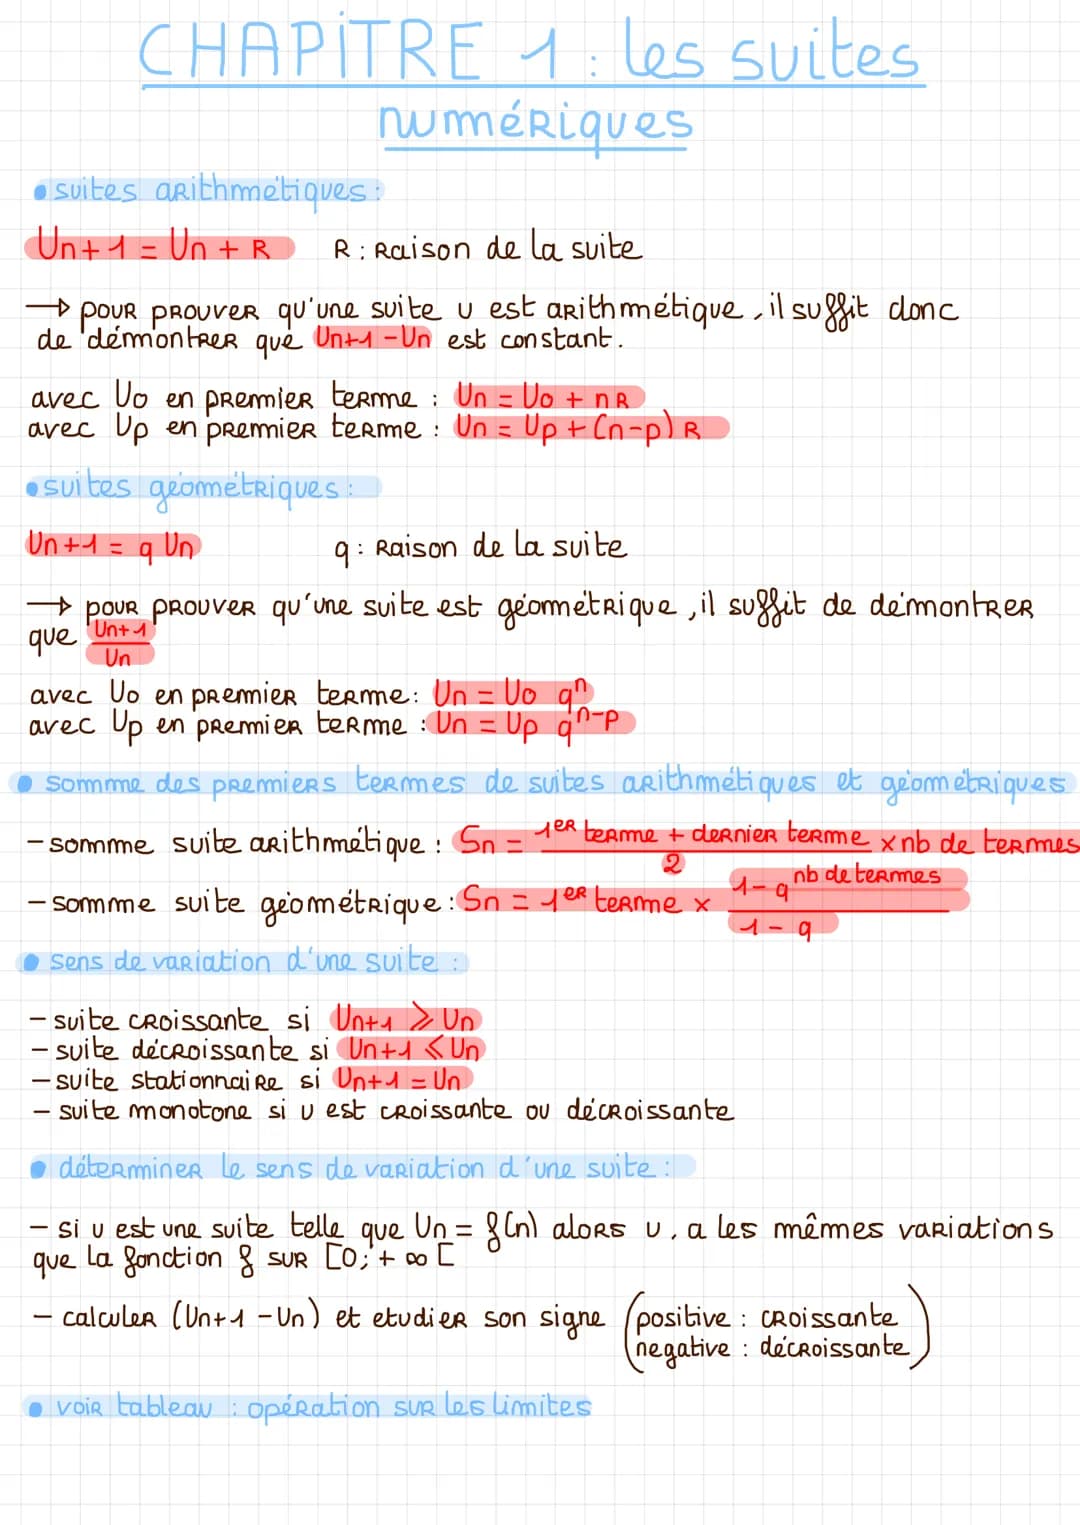 CHAPITRE 1 : les suites
numériques
• suites arithmétiques :
Un+1 = Un + R R : Raison de la suite
→ pour prouver qu'une suite u est arithmétique, il suffit donc
de démontrer que Un+1 - Un est constant.
avec U0 en premier terme : Un = U0 + nR
avec Up en premier terme : Un = Up + (n-p) R
• suites géométriques :
Un+1 = q Un q : Raison de la suite
→ pour prouver qu'une suite est géométrique, il suffit de démontrer
que Un+1 / Un
avec U0 en premier terme : Un = U0 q^n
avec Up en premier terme : Un = Up q^n-p
• somme des premiers termes de suites arithmétiques et géométriques
- somme suite arithmétique : Sn = 1er terme + dernier terme / 2 × nb de termes
- somme suite géométrique : Sn = 1er terme × 1 - q^nb de termes / 1 - q
• sens de variation d'une suite :
- suite croissante si Un+1 ⩾ Un
- suite décroissante si Un+1 ⩽ Un
- suite stationnaire si Un+1 = Un
- suite monotone si u est croissante ou décroissante
• déterminer le sens de variation d'une suite :
- si u est une suite telle que Un = f(n) alors u, a les mêmes variations
que la fonction f sur [0; +∞[
- calculer (Un+1 - Un) et etudier son signe (positive : croissante
negative : décroissante)
• voir tableau : opération sur les limites